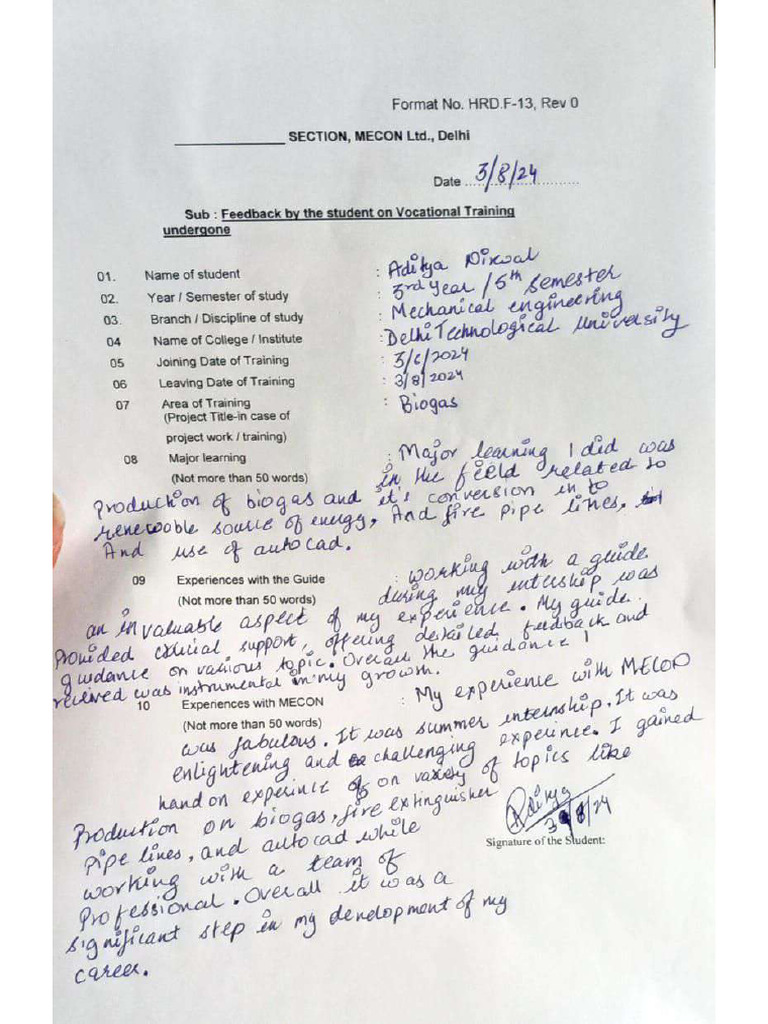 Format No. HRD.F-13, Rev 0
____________ SECTION, MECON Ltd., Delhi
Date ..... 3/8/24 ..........
Sub : Feedback by the student on Vocational Training
undergone
01. Name of student : Aditya Dixwal
02. Year / Semester of study : 3rd year / 5th semester
03. Branch / Discipline of study : Mechanical engineering
04 Name of College / Institute : Delhi Technological University
05 Joining Date of Training : 3/6/2024
06 Leaving Date of Training : 3/8/2024
07 Area of Training : Biogas
(Project Title-in case of
project work / training)
08 Major learning : Major learning I did was
(Not more than 50 words) in the field related to
production of biogas and it's conversion in to
renewable source of energy, And fire pipe lines,
And use of autocad.
09 Experiences with the Guide : working with a guide
(Not more than 50 words) during my internship was
an invaluable aspect of my experience. My guide
Provided crucial support, offering detailed feedback and
guidance on various topic. Overall the guidance I
recieved was instrumental in my growth.
10 Experiences with MECON : My experience with MECON
(Not more than 50 words)
was fabulous. It was summer internship. It was
enlightening and challenging experince. I gained
hand on experince on variety of topics like
Production on biogas, fire extinguisher
pipe lines, and autocad while
working with a team of
Professional. Overall it was a
significant step in my development of my
career.
Aditya
3/8/24
Signature of the Student: